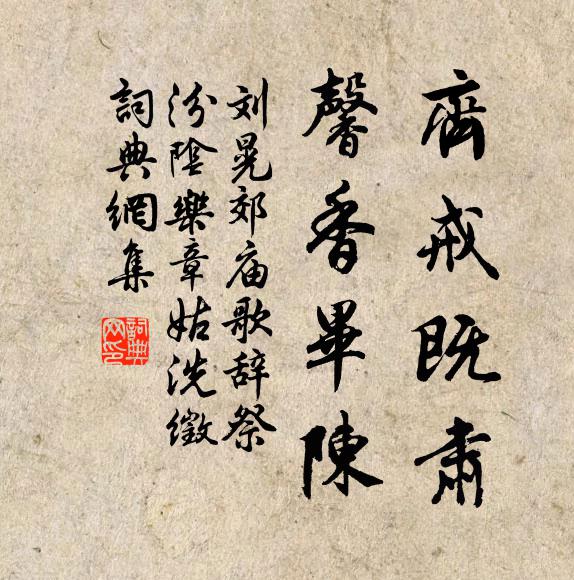 齊戒既肅
馨香畢陳
刘晃郊庙歌辞祭
汾陰樂章姑洗徵
詞典網集
詞典
网印